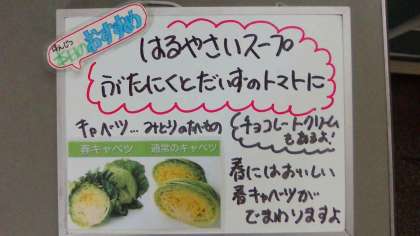 ほんじつ
おすすめ
はるやさいスープ
ぶたにくとだいずのトマトに
キャベツ…みどりのたべもの
チョコレートクリーム
もあるよ!
春キャベツ
通常のキャベツ
春にはおいしい
春キャベツが
でまわりますよ